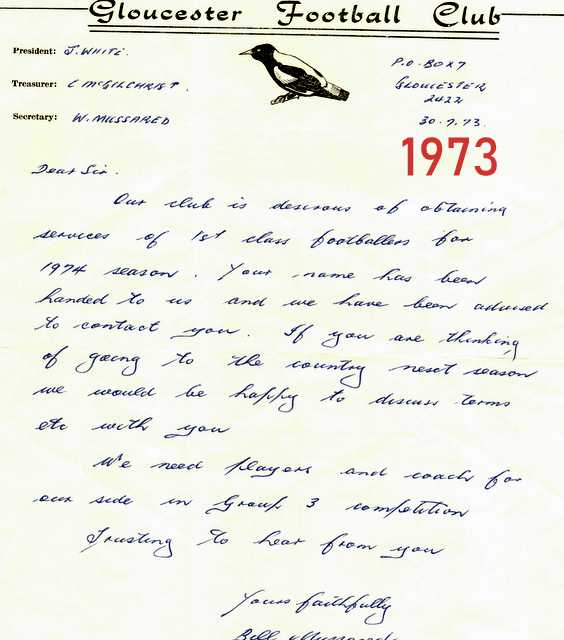 Gloucester Football Club
President: J. WHITE.
Treasurer: C McGILCHRIST.
Secretary: W. MUSSARED
P.O. BOX 7
GLOUCESTER
2422
30.7.73.
1973
Dear Sir.
Our club is desirous of obtaining
services of 1st class footballers for
1974 season. Your name has been
handed to us and we have been advised
to contact you. If you are thinking
of going to the country next season
we would be happy to discuss terms
etc with you
We need players and coach for
our side in Group 3 competition
Trusting to hear from you
Yours faithfully
Bill Mussared